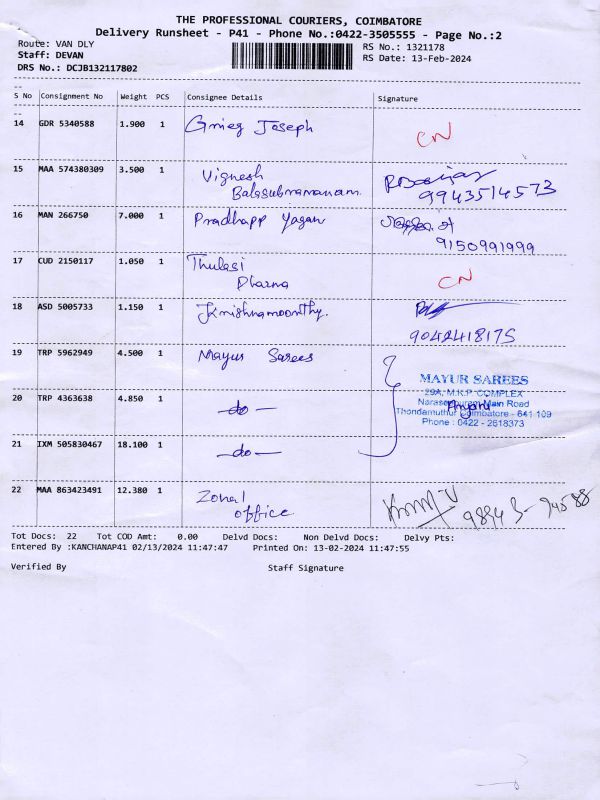 THE PROFESSIONAL COURIERS, COIMBATORE
Delivery Runsheet - P41 - Phone No.:0422-3505555 - Page No.:2
Route: VAN DLY RS No.: 1321178
Staff: DEVAN RS Date: 13-Feb-2024
DRS No.: DCJB132117802
S No Consignment No Weight PCS Consignee Details Signature
14 GDR 5340588 1.900 1 Grieg Joseph CN
15 MAA 574380309 3.500 1 Vignesh
Balasubramanam. 9943514573
16 MAN 266750 7.000 1 Pradhapp Yagav
9150991999
17 CUD 2150117 1.050 1 Thulasi
Dharna CN
18 ASD 5005733 1.150 1 Krishnamoorthy.
9042418175
19 TRP 5962949 4.500 1 Mayur Sarees
MAYUR SAREES
29A, M.R.P. COMPLEX
20 TRP 4363638 4.850 1 -do- Main Road
Thondamuthur Coimbatore - 641 109
Phone : 0422 - 2618373
21 IXM 505830467 18.100 1 -do-
22 MAA 863423491 12.380 1 Zonal
office
Tot Docs: 22 Tot COD Amt: 0.00 Delvd Docs: Non Delvd Docs: Delvy Pts:
Entered By :KANCHANAP41 02/13/2024 11:47:47 Printed On: 13-02-2024 11:47:55
Verified By Staff Signature